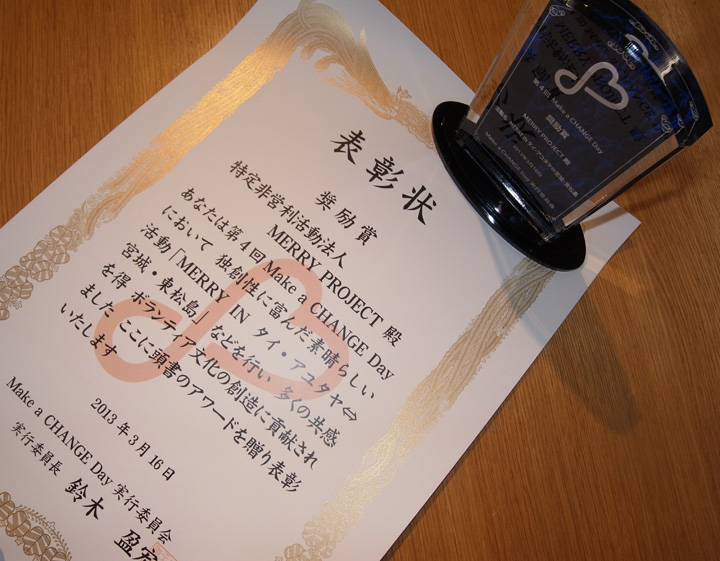 表彰状
奨励賞
特定非営利活動法人
MERRY PROJECT 殿
あなたは第4回 Make a CHANGE Day
において 独創性に富んだ素晴らしい
活動「MERRY IN タイ・アユタヤ⇔
宮城・東松島」などを行い 多くの共感
を得 ボランティア文化の創造に貢献され
ました ここに頭書のアワードを贈り表彰
いたします
2013年3月16日
Make a CHANGE Day 実行委員会
実行委員長 鈴木 盈宏
第4回 Make a CHANGE Day
奨励賞
MERRY PROJECT 殿